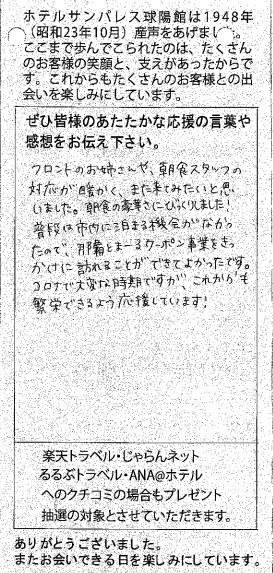 ホテルサンパレス球陽館は1948年
(昭和23年10月)産声をあげまし
ここまで歩んでこられたのは、たくさん
のお客様の笑顔と、支えがあったからで
す。これからもたくさんのお客様との出
会いを楽しみにしています。
ぜひ皆様のあたたかな応援の言葉や
感想をお伝え下さい。
フロントのお姉さんや、朝食スタッフの
対応が暖かく、また来てみたいと思
いました。朝食の豪華さにびっくりしました!
普段は市内に泊まる機会がなかっ
たので、那覇とまーるクーポン事業をきっ
かけに訪れることができてよかったです。
コロナで大変な時期ですが、これからも
繁栄できるよう応援しています!
楽天トラベル・じゃらんネット
るるぶトラベル・ANA@ホテル
へのクチコミの場合もプレゼント
抽選の対象とさせていただきます。
ありがとうございました。
またお会いできる日を楽しみにしています。